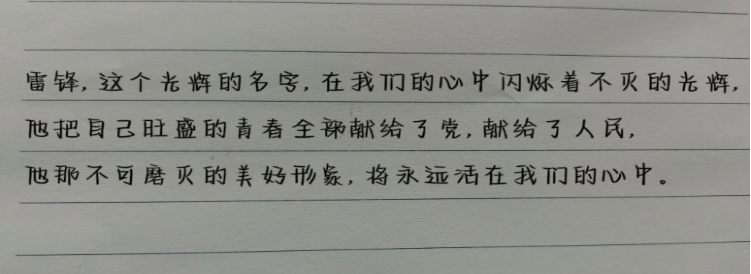 雷锋,这个光辉的名字,在我们的心中闪烁着不灭的光辉,
他把自己旺盛的青春全部献给了党,献给了人民,
他那不可磨灭的美好形象,将永远活在我们的心中。